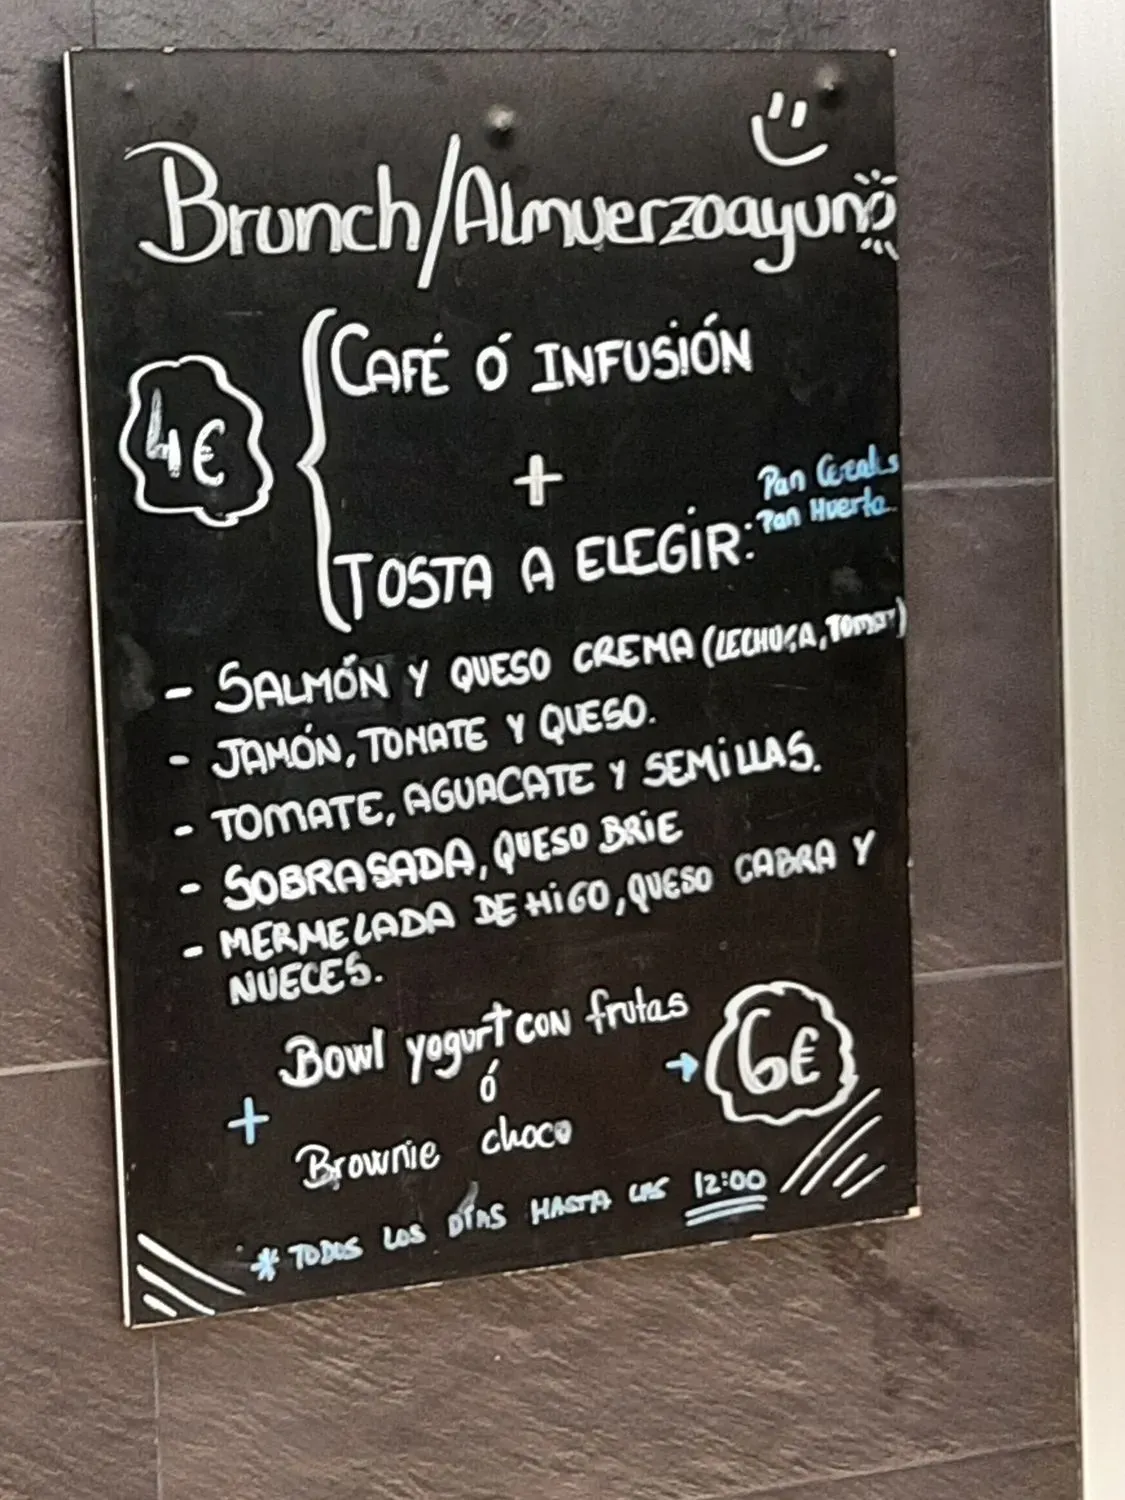 Brunch/Almuerzoayuno
4€
CAFÉ Ó INFUSIÓN
+
Pan Cereales
Pan Huerta
TOSTA A ELEGIR:
- SALMÓN Y QUESO CREMA (LECHUGA, TOMAT)
- JAMÓN, TOMATE Y QUESO.
- TOMATE, AGUACATE Y SEMILLAS.
- SOBRASADA, QUESO BRIE
- MERMELADA DE HIGO, QUESO CABRA Y
NUECES.
Bowl yogurt CON frutas
ó
→ 6€
+
Brownie choco
* TODOS LOS DÍAS HASTA LAS 12:00